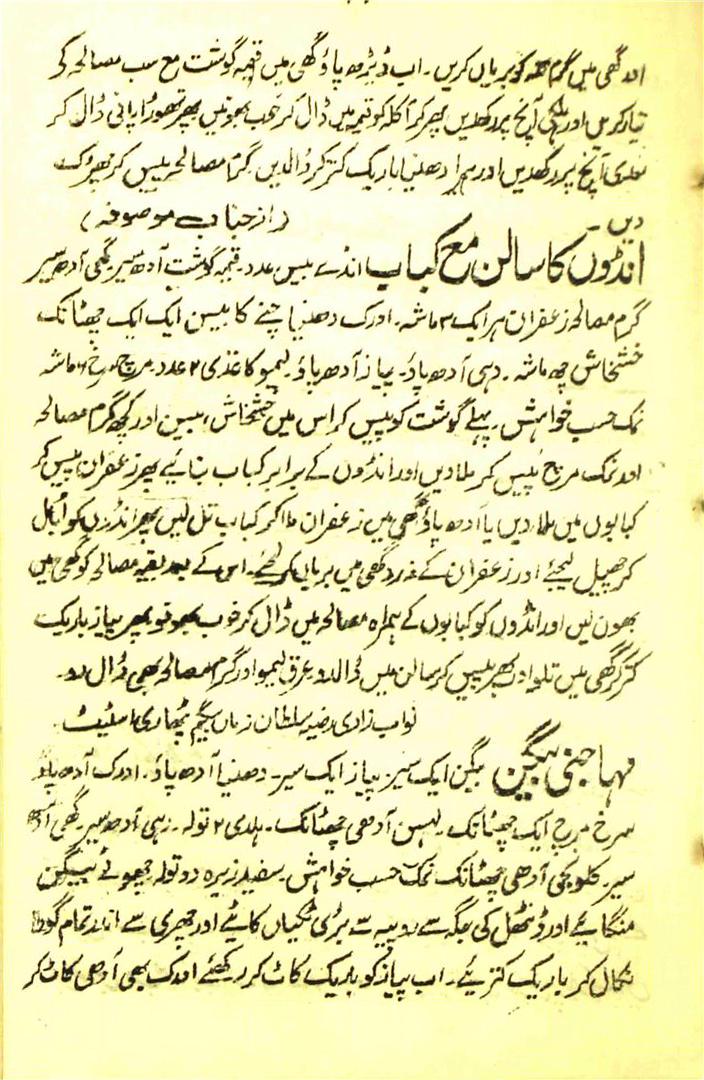 اور گھی میں گرم مصالحہ کو بریاں کریں۔ اب ڈیڑھ پاؤ گھی میں قیمہ گوشت مع سب مصالحہ کے
تیار کریں اور ہلکی آنچ پر رکھدیں پھر کرم کلہ کو قیمہ میں ڈال کر خوب بھونیں پھر تھوڑا پانی ڈال کر
آنچ پر رکھدیں اور ہرا دھنیا باریک کتر کر ڈالدیں گرم مصالحہ پیس کر چھڑک
دیں۔ (از جناب موصوفہ)
انڈوں کا سالن مع کباب انڈے بیس عدد۔ قیمہ گوشت آدھ سیر۔ گھی آدھ سیر
گرم مصالحہ زعفران ہر ایک ۳ ماشہ۔ ادرک دھنیا چنے کا بیسن ایک ایک چھٹانک
خشخاش چھ ماشہ۔ دہی آدھ پاؤ۔ پیاز آدھ پاؤ۔ لیمو کاغذی ۲ عدد۔ مرچ سرخ ۶ ماشہ
نمک حسب خواہش۔ پہلے گوشت کو پیس کر اس میں خشخاش، بیسن اور کچھ گرم مصالحہ
اور نمک مرچ پیس کر ملا دیں اور انڈوں کے برابر کباب بنائیے پھر زعفران پیس کر
کبابوں میں ملا دیں یا آدھ پاؤ گھی میں زعفران ملا کر کباب تل لیں پھر انڈوں کو اُبال
کر چھیل لیجئے اور زعفران کے زرد گھی میں بریاں کر لیجئے۔ اس کے بعد بقیہ مصالحہ کو گھی میں
بھون لیں اور انڈوں کو کبابوں کے ہمراہ مصالحہ میں ڈال کر خوب بھونو پھر پیاز باریک
کتر کر گھی میں تلو اور پھر پیس کر سالن میں ڈالدو عرق لیمو اور گرم مصالحہ بھی ڈال دو۔
نواب زادی رضیہ سلطان زماں بیگم پٹھاری اسٹیٹ۔
مہاجنی بیگن بیگن ایک سیر پیاز ایک سیر۔ دھنیا آدھ پاؤ۔ ادرک آدھ پاؤ
سرخ مرچ ایک چھٹانک۔ لہسن آدھی چھٹانک۔ ہلدی ۲ تولہ۔ دہی آدھ سیر۔ گھی آدھ
سیر۔ کلونجی آدھی چھٹانک نمک حسب خواہش۔ سفید زیرہ دو تولہ چھوٹے بیگن
منگائیے اور ڈنٹھل کی جگہ سے روپیہ سے بڑی ٹکیاں کاٹیے اور چھری سے اندر تمام گودا
نکال کر باریک کتریئے۔ اب پیاز کو باریک کاٹ کر رکھئے ادرک بھی آدھی کاٹ کر